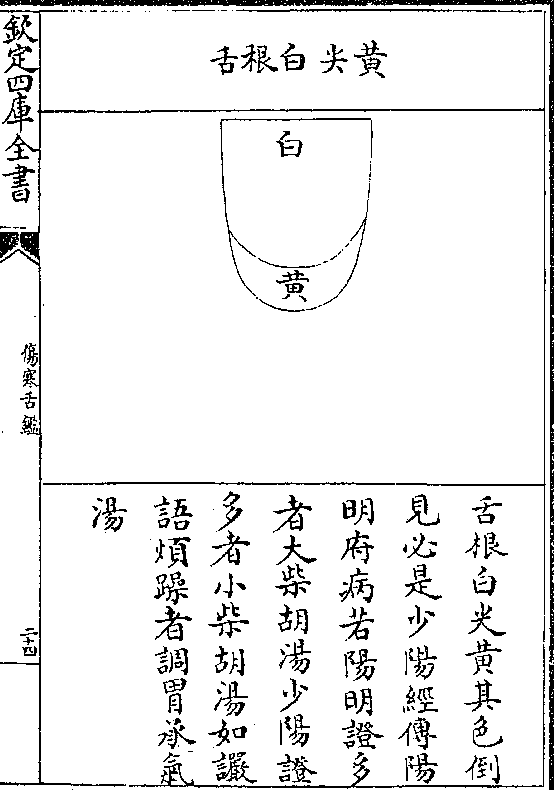 黄尖白根舌
白
黄
舌根白尖黄其色倒
見必是少陽經傳陽
明府病若陽明證多
者大柴胡湯少陽證
多者小柴胡湯如讝
語煩躁者調胃承氣
湯
欽定四庫全書
傷寒舌鑑
二十四